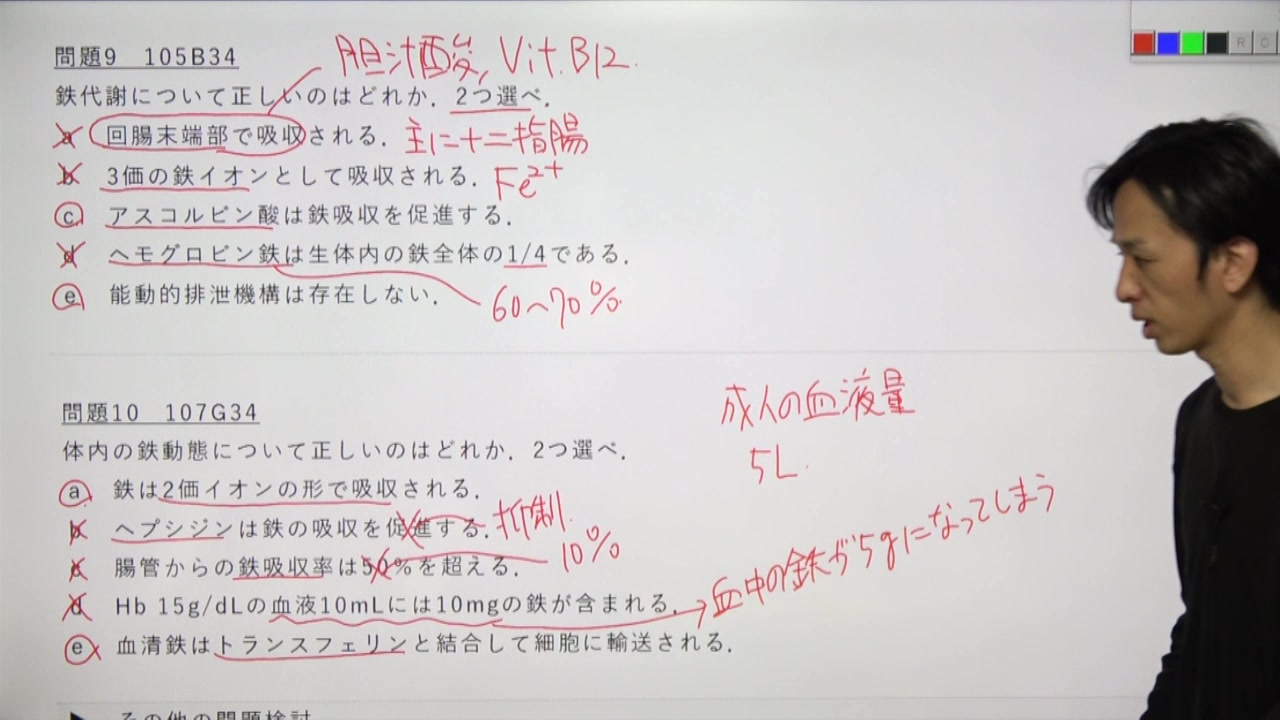 問題9 105B34
胆汁酸, Vit. B12.
鉄代謝について正しいのはどれか. 2つ選べ.
a 回腸末端部で吸収される. 主に十二指腸
b 3価の鉄イオンとして吸収される. Fe²⁺
c アスコルビン酸は鉄吸収を促進する.
d ヘモグロビン鉄は生体内の鉄全体の1/4である.
e 能動的排泄機構は存在しない.
60〜70%.
問題10 107G34
成人の血液量
5L.
体内の鉄動態について正しいのはどれか. 2つ選べ.
a 鉄は2価イオンの形で吸収される.
b ヘプシジンは鉄の吸収を促進する. 抑制.
c 腸管からの鉄吸収率は50%を超える. 10%
d Hb 15g/dLの血液10mLには10mgの鉄が含まれる. → 血中の鉄が5gになってしまう
e 血清鉄はトランスフェリンと結合して細胞に輸送される.
▶ その他の問題検討
R C